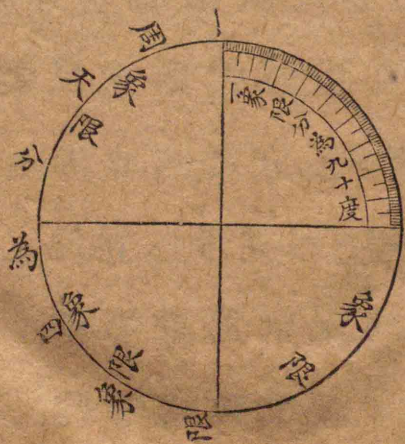 一周天分為四象限
一象限分為九十度
象限
象限
象限